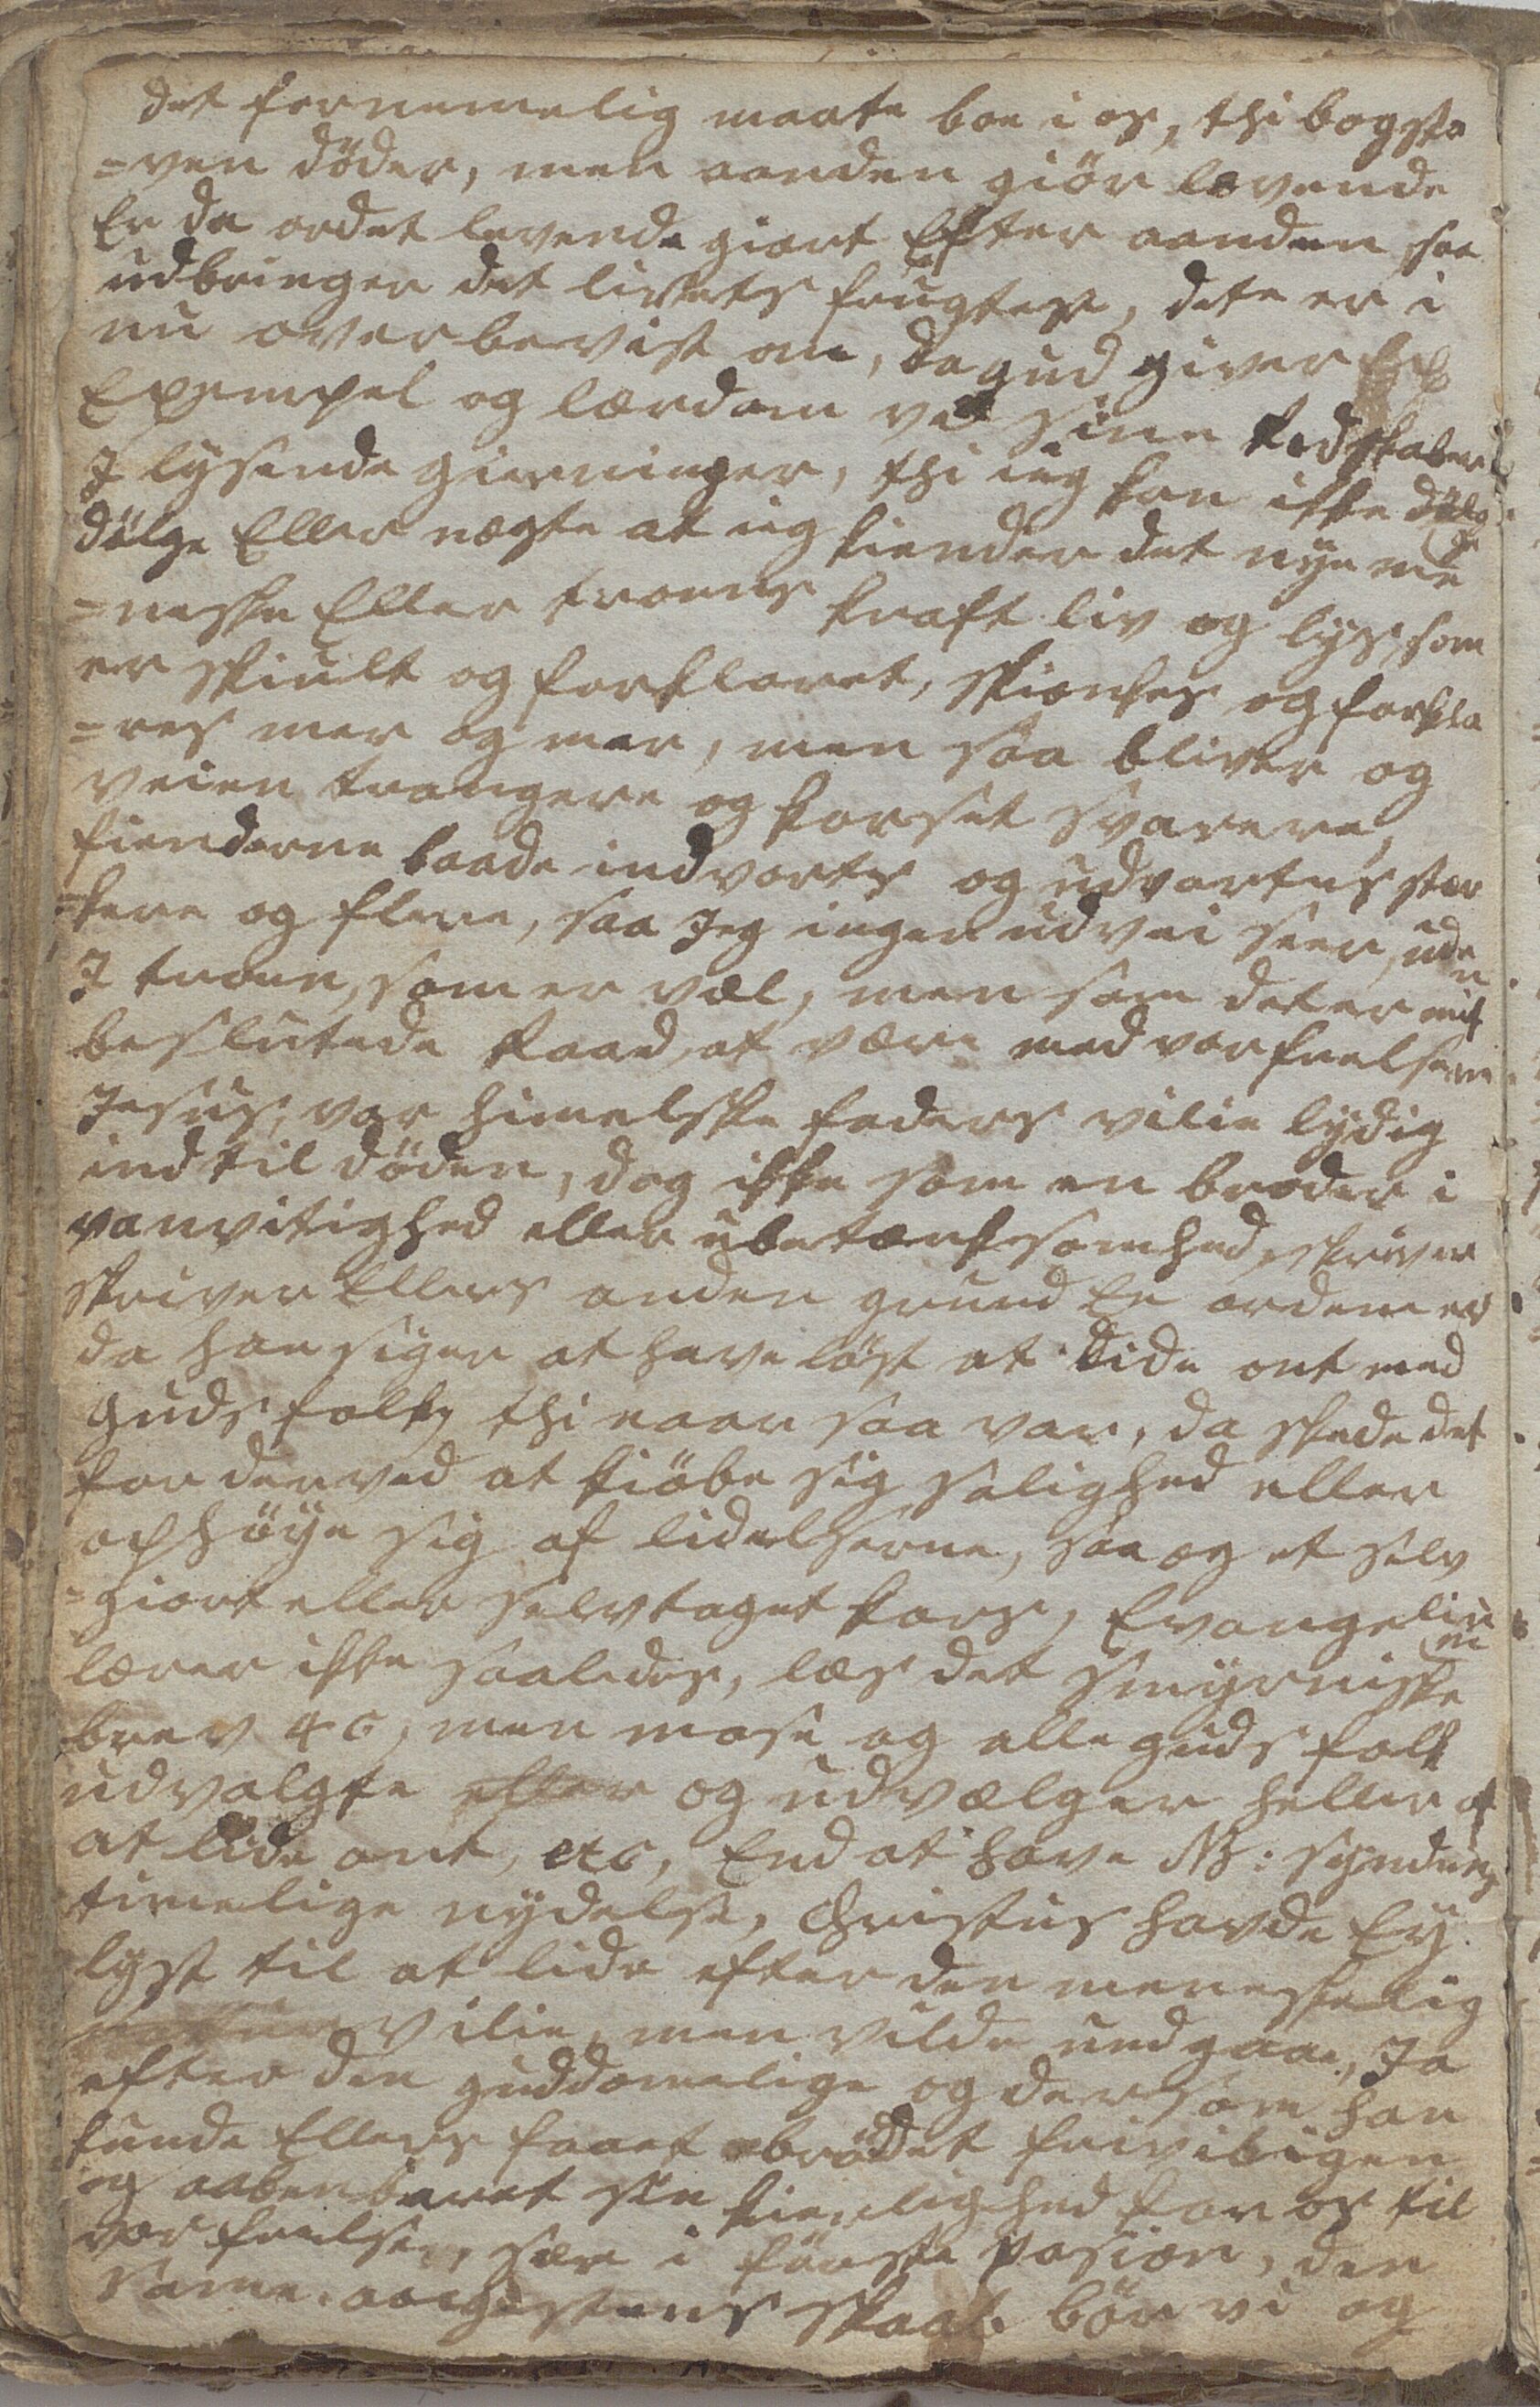 det fornemelig maate boe i os, thi bogsta
=ven döder, men aanden giör levende
Er da ordet levende giort Efter aanden saa
udbringer det livets frugter, dete er i
nu overbevist om, da gud giver
Exempel og lærdom ved sine Redskaber
I lysende gierninger, thi ieg kan ikke dölge
dölge Eller nægte at ieg kiender det nye me
=neske Eller troens kraft liv og lys, som
er skiult og forklaret, skienkes og forkla
=res mer og mer, men saa bliver og
veien trangere og korset svarere,
fienderne baade indvortes og udvortes stær
=kere og flere, saa Jeg ingen udvei seer, uden
I troen, som er vel, men som det er mit
beslutede Raad, at være med vor frelsere
Jesus, vor himelske faders vilie lydig
ind til döden, dog ikke som en broder i
vanvitighed eller ubetænksomhed, skriver
skriver Ellers anden grund En ordene er
da han siger at have löst at lide ont med
guds folk, thi naar saa var, da skede det
for derved at kiöbe sig salighed eller
ophöye sig af lidelserne, saa og et selv
=giort eller selvtaget kors, Evangelium
lærer ikke saaledes, læs det Smyrniske
brev 4 c, men mose og alle guds folk
udvalgte eller og udvælger heller at
at lide ont, etc, End at have NB: syndens
timelige nydelse, Christus havde Ey
lyst til at lide efter den meneskelig
vilie, men vilde undgaae, Ja
efter den guddomelige og dersom han
kunde Ellers faaet bröde frivilligen
og aabenbaret sin kierlighed for os til
vor frelse, see i förste pasion, den
same skaal bör vi og